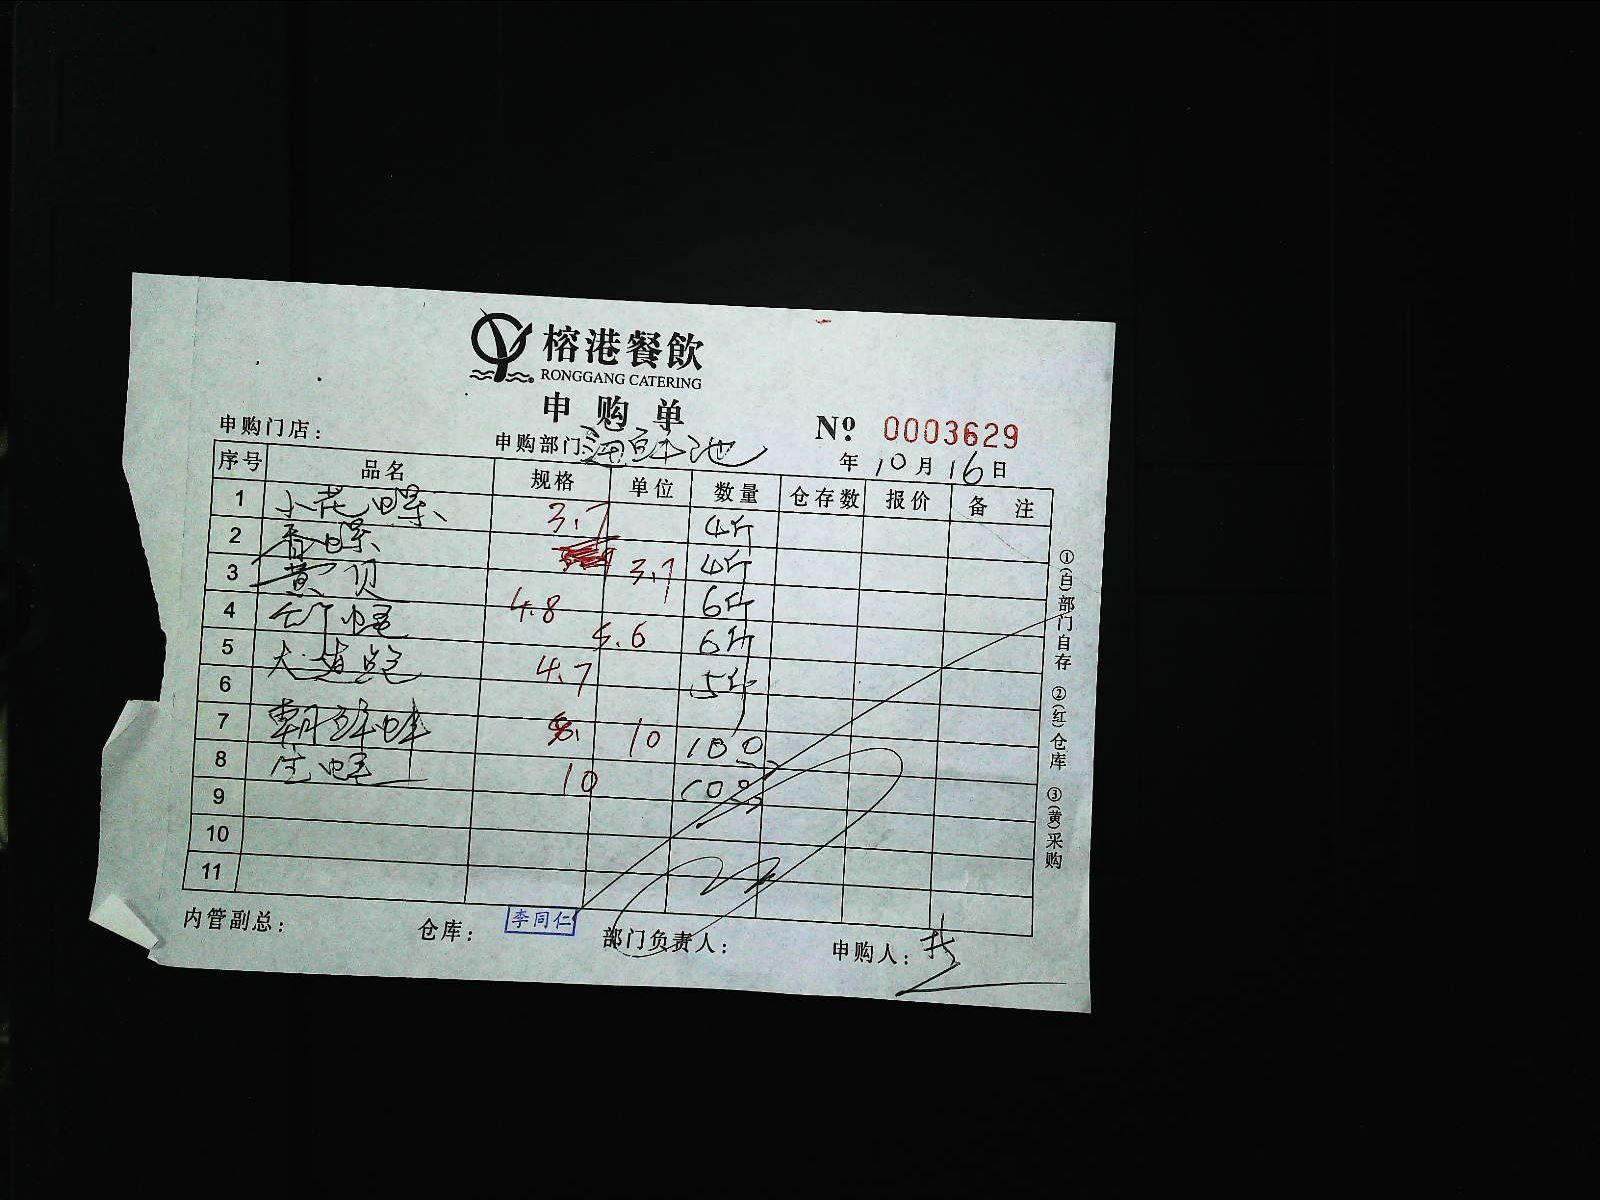 榕港餐飲
RONGGANG CATERING
申购单
№ 0003629
申购门店： 申购部门：海鲜池 年 10月 16日
序号 品名 规格 单位 数量 仓存数 报价 备注
1 小花螺 3.7 4斤
2 香螺 3.7 4斤
3 黄贝 4.8 6斤
4 竹蛏 5.6 6斤
5 大连鲍 4.7 5斤
6
7 朝鲜蚌 10 100
8 生蚝 10 100
9
10
11
①(白)部门自存 ②(红)仓库 ③(黄)采购
内管副总： 仓库： 李同仁 部门负责人： 申购人：